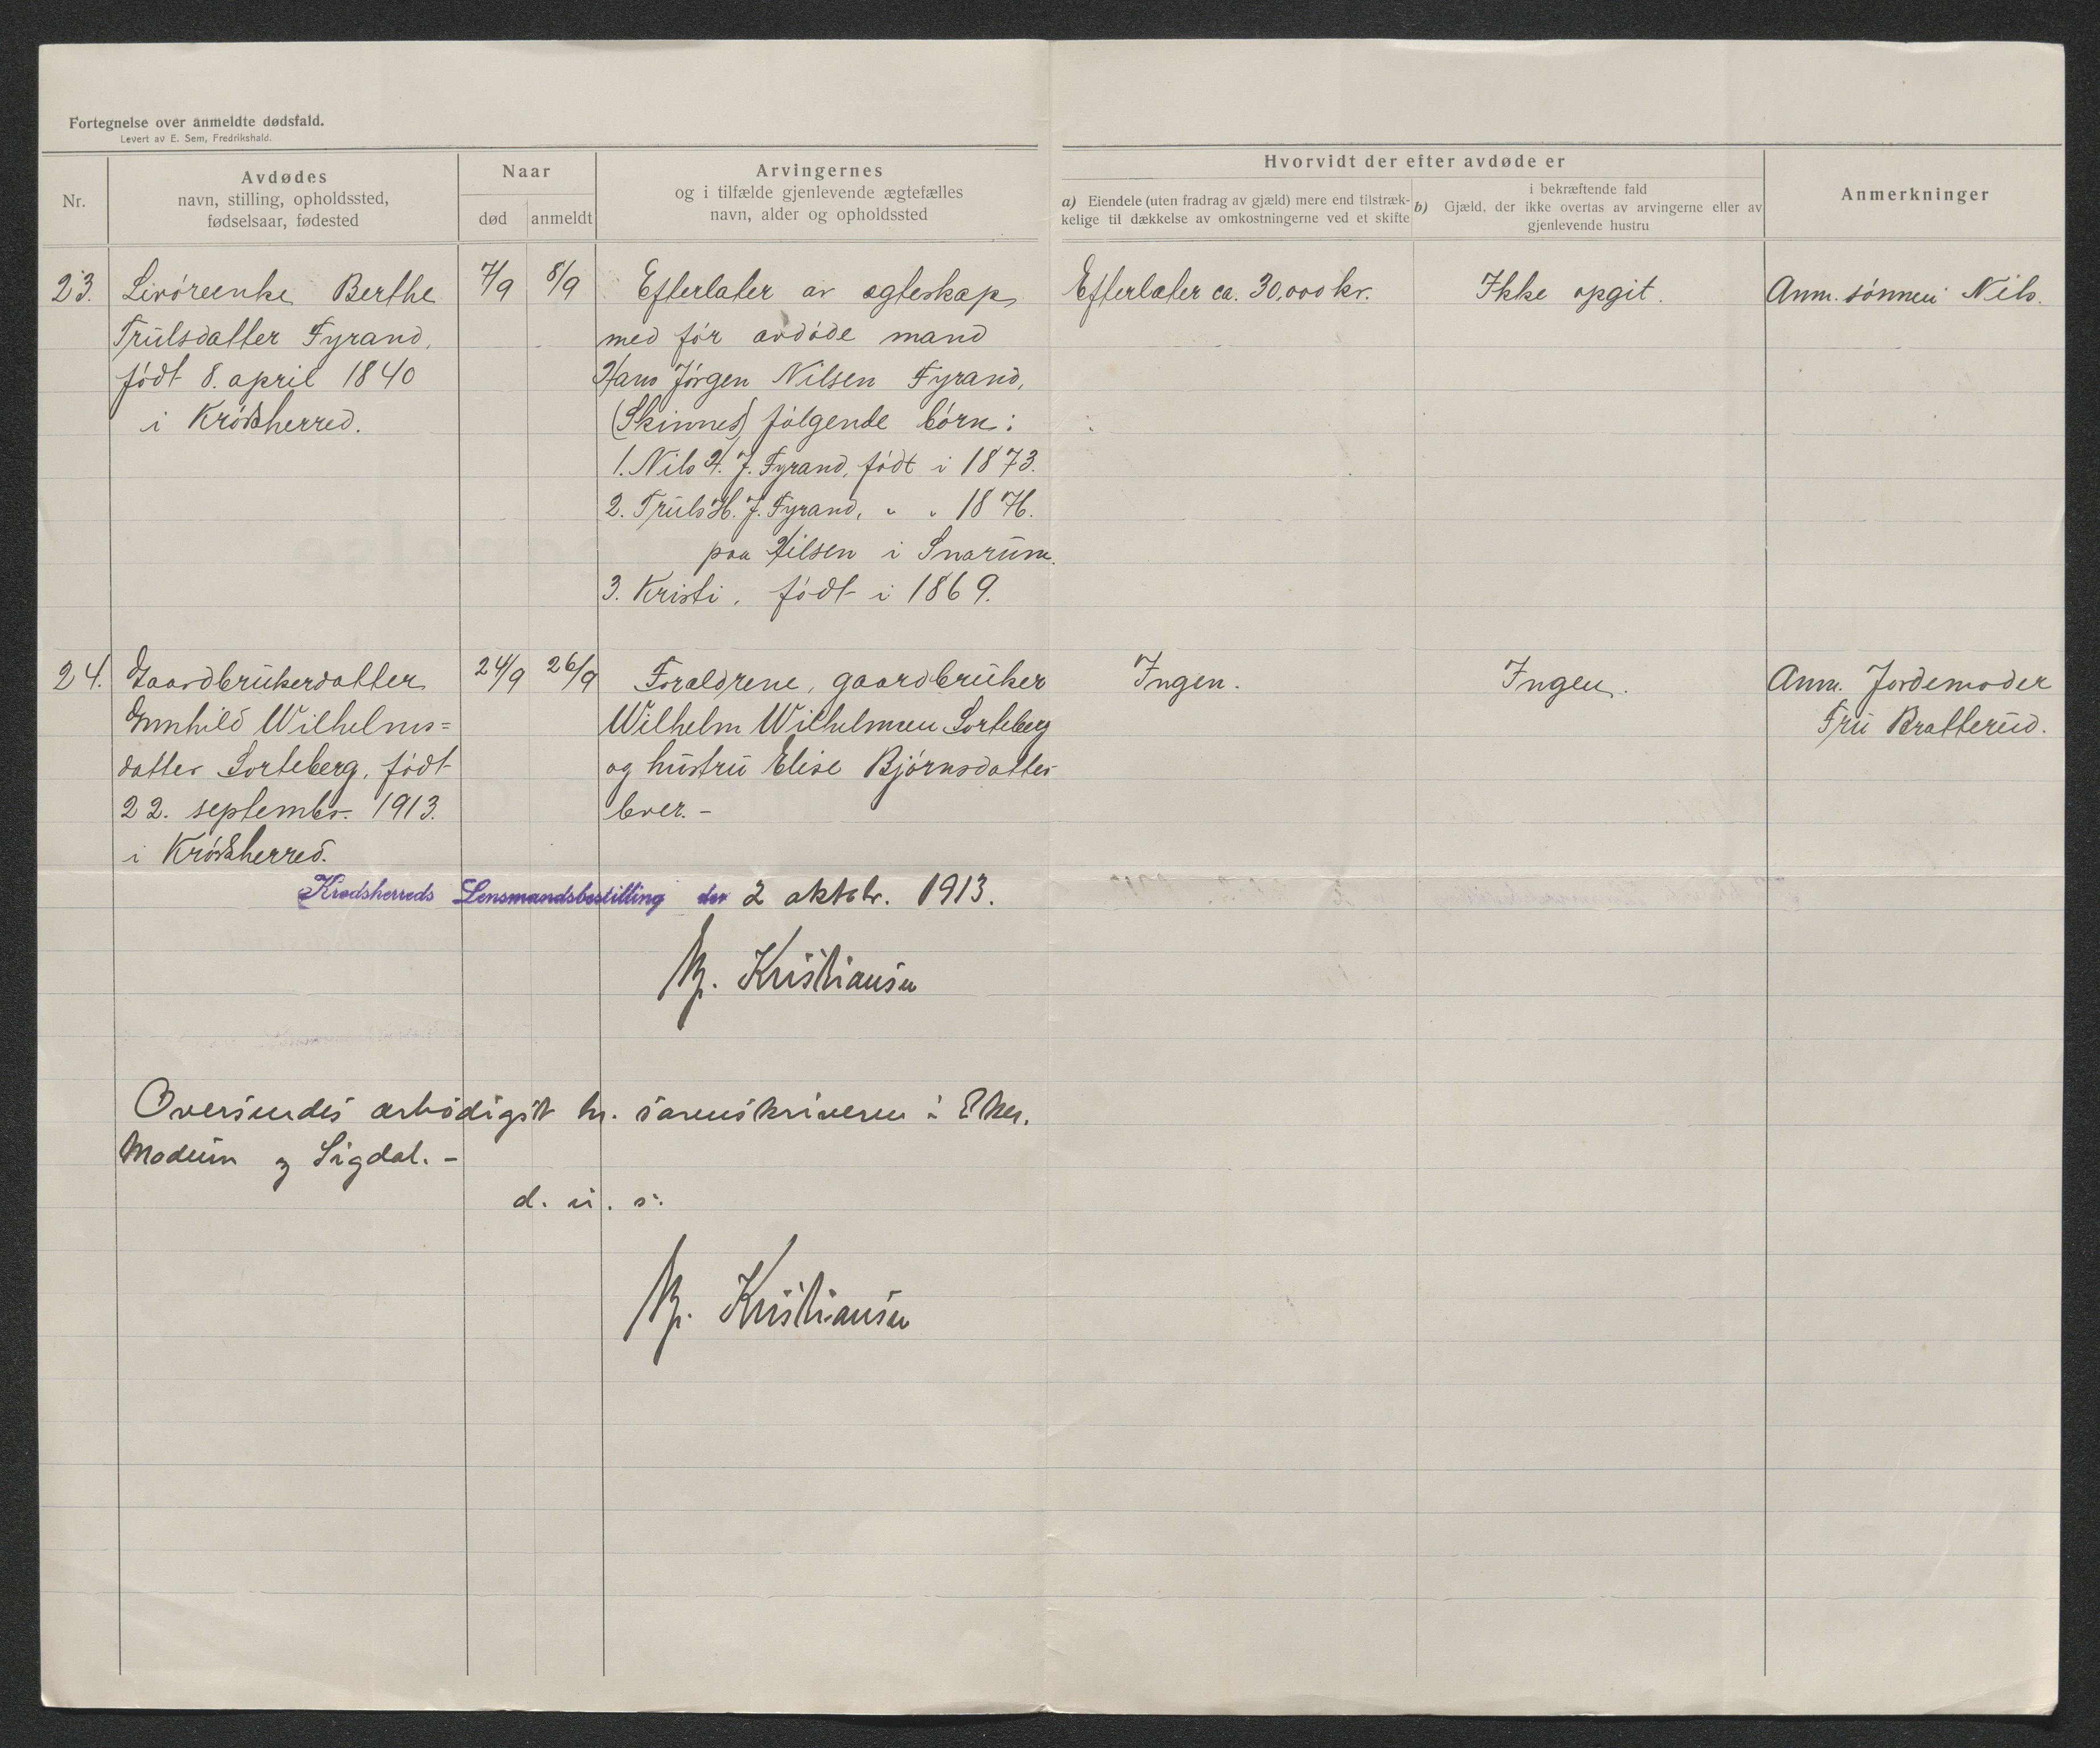 Fortegnelse over anmeldte dødsfald.
Levert av E. Sem, Fredrikshald.
Nr.
Avdødes
navn, stilling, opholdssted,
fødselsaar, fødested
Naar
død
anmeldt
Arvingernes
og i tilfælde gjenlevende ægtefælles
navn, alder og opholdssted
Hvorvidt der efter avdøde er
a) Eiendele (uten fradrag av gjæld) mere end tilstræk-
kelige til dækkelse av omkostningerne ved et skifte
i bekræftende fald
b) Gjæld, der ikke overtas av arvingerne eller av
gjenlevende hustru
Anmerkninger
23.
Livörenke Berthe
Trulsdatter Fyrand,
födt 8. april 1840
i Krödsherred.
7/9
8/9
Efterlater av egteskap
med för avdöde mand
Hans Jörgen Nilsen Fyrand,
(Skinnes) følgende börn:
1. Nils H. J. Fyrand, födt i 1873.
2. Truls H. J. Fyrand, " " 1876.
paa Hilsen i Snarum.
3. Kristi, födt i 1869.
Efterlater ca. 30,000 kr.
Ikke opgit.
Anm. sönnen Nils.
24.
Gaardbrukerdatter
Gunhild Wilhelms=
datter Sorteberg, födt
22. septembr. 1913.
i Krödsherred.
24/9
26/9
Foraldrene, gaardbruker
Wilhelm Wilhelmsen Sorteberg
og hustru Elise Björnsdatter
lever. -
Ingen.
Ingen.
Anm. Jordemoder
Fru Bratterud.
Krødsherreds Lensmandsbestilling den 2 oktbr. 1913.
Kristiansen
Oversendes ærbödigst hr. sorenskriveren i Eker,
Modum og Sigdal. -
d. u. s.
Kristiansen